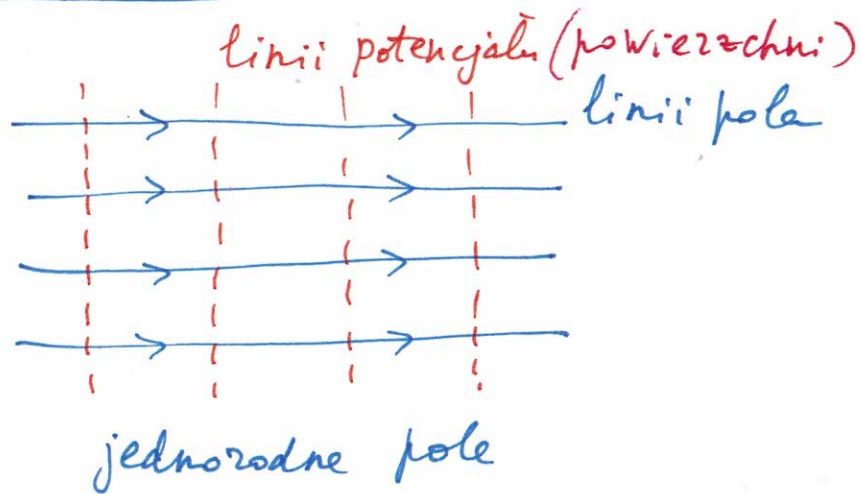 linii potencjału (powierzchni)
linii pola
jednorodne pole